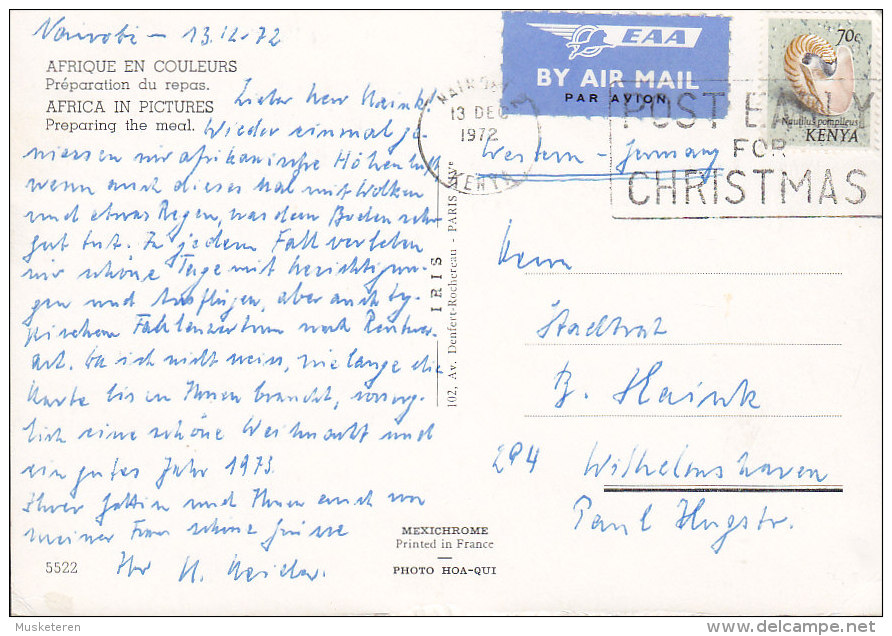 Nairobi - 13.12.72
AFRIQUE EN COULEURS
Préparation du repas.
AFRICA IN PICTURES
Preparing the meal.
Lieber Herr Haink!
Wieder einmal ge-
niessen wir afrikanische Höhenluft
wenn auch dieses Mal mit Wolken
und etwas Regen, was dem Boden sehr
gut tut. In jedem Fall verleben
wir schöne Tage mit Besichtigun-
gen und Ausflügen, aber auch ty-
pischem
Da ich nicht weiss, wie lange die
Karte bis zu Ihnen braucht, vorsorg-
lich eine schöne Weihnacht und
ein gutes Jahr 1973.
Ihrer Gattin und Ihnen auch von
meiner Frau schöne Grüsse
Ihr H.
5522
EAA
BY AIR MAIL
PAR AVION
70c
Nautilus pompileus
KENYA
NAIROBI
13 DEC
1972
KENYA
POST EARLY
FOR
CHRISTMAS
Western - Germany
Herrn
Stadtrat
B. Haink
294 Wilhelmshaven
Paul Hugstr.
IRIS
102, Av. Denfert-Rochereau - PARIS
MEXICHROME
Printed in France
PHOTO HOA-QUI
Musketeren
delcampe.net